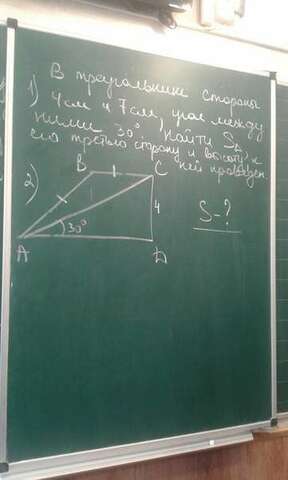 В треугольнике стороны
1) 4 см и 7 см, угол между
ними 30°, Найти S△,
его третью сторону и высоту, к
ней проведен.
2)
B
C
4
S-?
30°
A
D